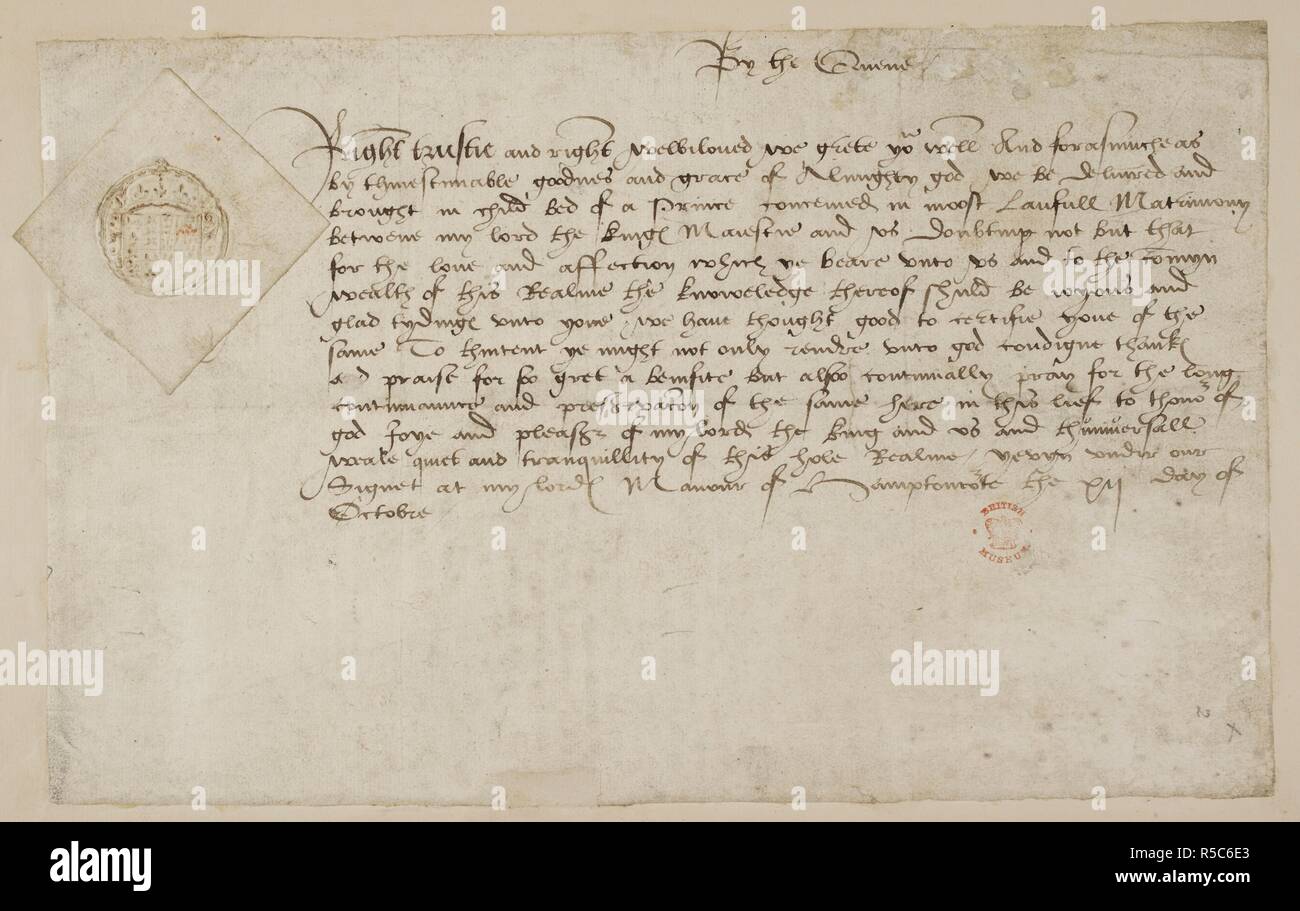 By the Quene
Right trustie and right welbiloved we grete yor well And forasmuche as
by thinestimable goodnes and grace of Almighty god we be delivred and
brought in child bed of a Prince conceived in moost Laufull Matrimony
betwene my lord the kings Maiestie and us Doubting not but that
for the love and affection which ye beare unto us and to the comyn
wealth of this Realme the knowledge thereof shuld be ioyous and
glad tydings unto youe we have thought good to certifie youe of the
same To thintent ye might not only rendre unto god condigne thanks
and praise for so gret a benfite but also continually pray for the long
continuaunce and preservacon of the same here in this lief to thonor of
god Joye and pleasr of my lord the king and us and thuniversall
weale quiet and tranquillity of this hole Realme yevyn undre our
Signet at my lords Manour of Hamptoncorte the xii day of
Octobre
BRITISH
MUSEUM
alamy
alamy
alamy
R5C6E3
www.alamy.com